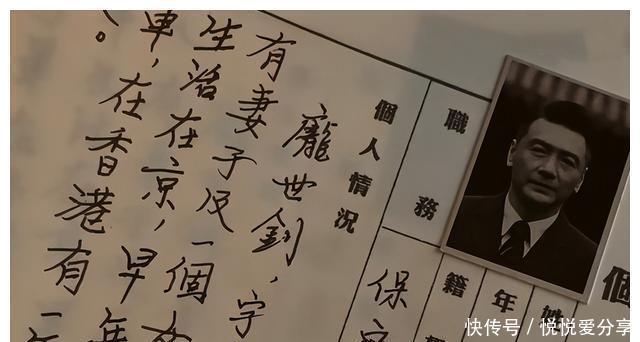 個
年
籍
職務
保
個人情況
龐世釗，字
有妻子及一個女
生活在京，早年
車，在香港有
。
快传号 / 悦悦爱分享